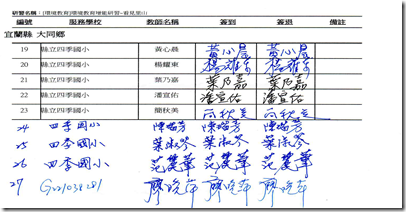 研習名稱：[環境教育]環境教育增能研習-看見里山
編號 服務學校 教師名稱 簽到 簽退 備註
宜蘭縣 大同鄉
19 縣立四季國小 黃心晨 黃心晨
20 縣立四季國小 楊耀東 楊耀東
21 縣立四季國小 葉乃嘉 葉乃嘉 葉乃嘉
22 縣立四季國小 潘宜佑 潘宜佑 潘宜佑
23 縣立四季國小 簡秋美
24 四季國小 陳瑞芳 陳瑞芳 陳瑞芳
25 四季國小 葉淑芬 葉淑芬 葉淑芬
26 四季國小 范慧華 范慧華 范慧華
27 廖曉萍 廖曉萍 廖曉萍